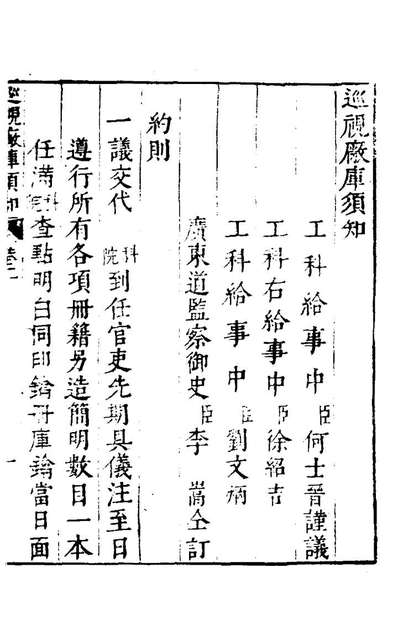 巡視廠庫須知
工科給事中臣何士晉謹議
工科右給事中臣徐紹吉
工科給事中臣劉文炳
廣東道監察御史臣李嵩仝訂
約則
一議交代科院到任官吏先期具儀注至日
遵行所有各項冊籍另造簡明數目一本
任滿科院查點明白同印鑰冊庫鑰當日面
巡視廠庫須知 卷二 一